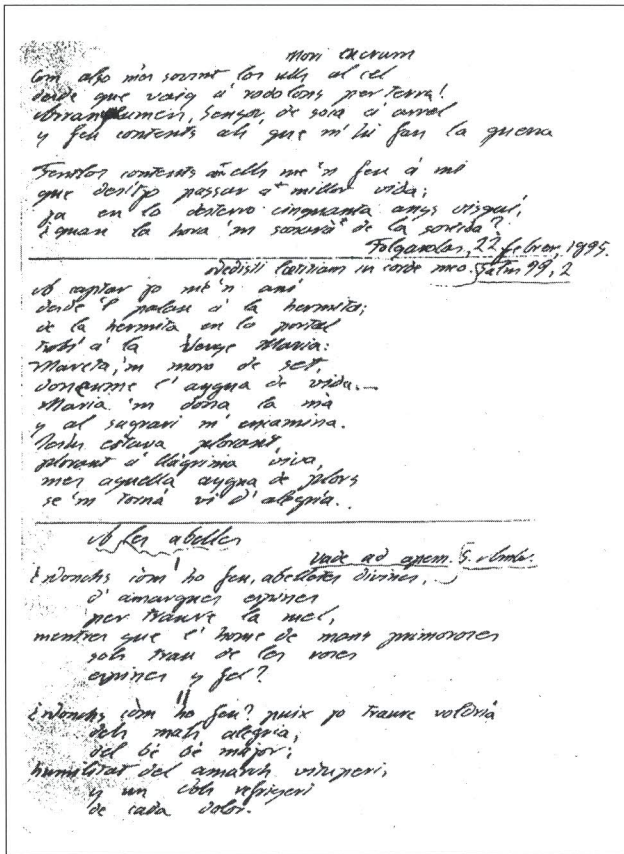 Mori lucrum
Com alço més sovint los ulls al cel
desde que vaig á rodolons per terra!
Arranaume, Senyor, de soca á arrel
y feu contents als que m' hi fan la guerra
Fentlos contents á ells me 'n feu á mi
que desitjo passar á millor vida;
ja en lo desterro cinquanta anys visquí,
¿quan la hora 'm sonará de la sortida?
Folgarolas, 22 febrer, 1895.
Dedisti lætitiam in corde meo. Salm 99, 2
A captar jo me 'n aní
desde 'l palau á la hermita;
de la hermita en lo portal
trobí á la Verge Maria:
Mareta, 'm moro de set,
donaume l' aygua de vida.—
Maria 'm dona la má
y al sagrari m' encamina.
Jesús estava plorant,
plorant á llágrima viva,
mes aquella aygua de plors
se 'm torná vi d' alegría.
A les abelles
Vade ad apem. S. Ambr.
¿Donchs còm ho feu, abelletes divines,
d' amargues espines
per traure la mel,
mentres que l' home de mans primoroses
sols trau de les roses
espines y fel?
II
¿Donchs còm ho feu? puix jo traure voldria
dels mals alegria,
del bé bé major;
humilitat del amarch vituperi,
y un dols refrigeri
de cada dolor.